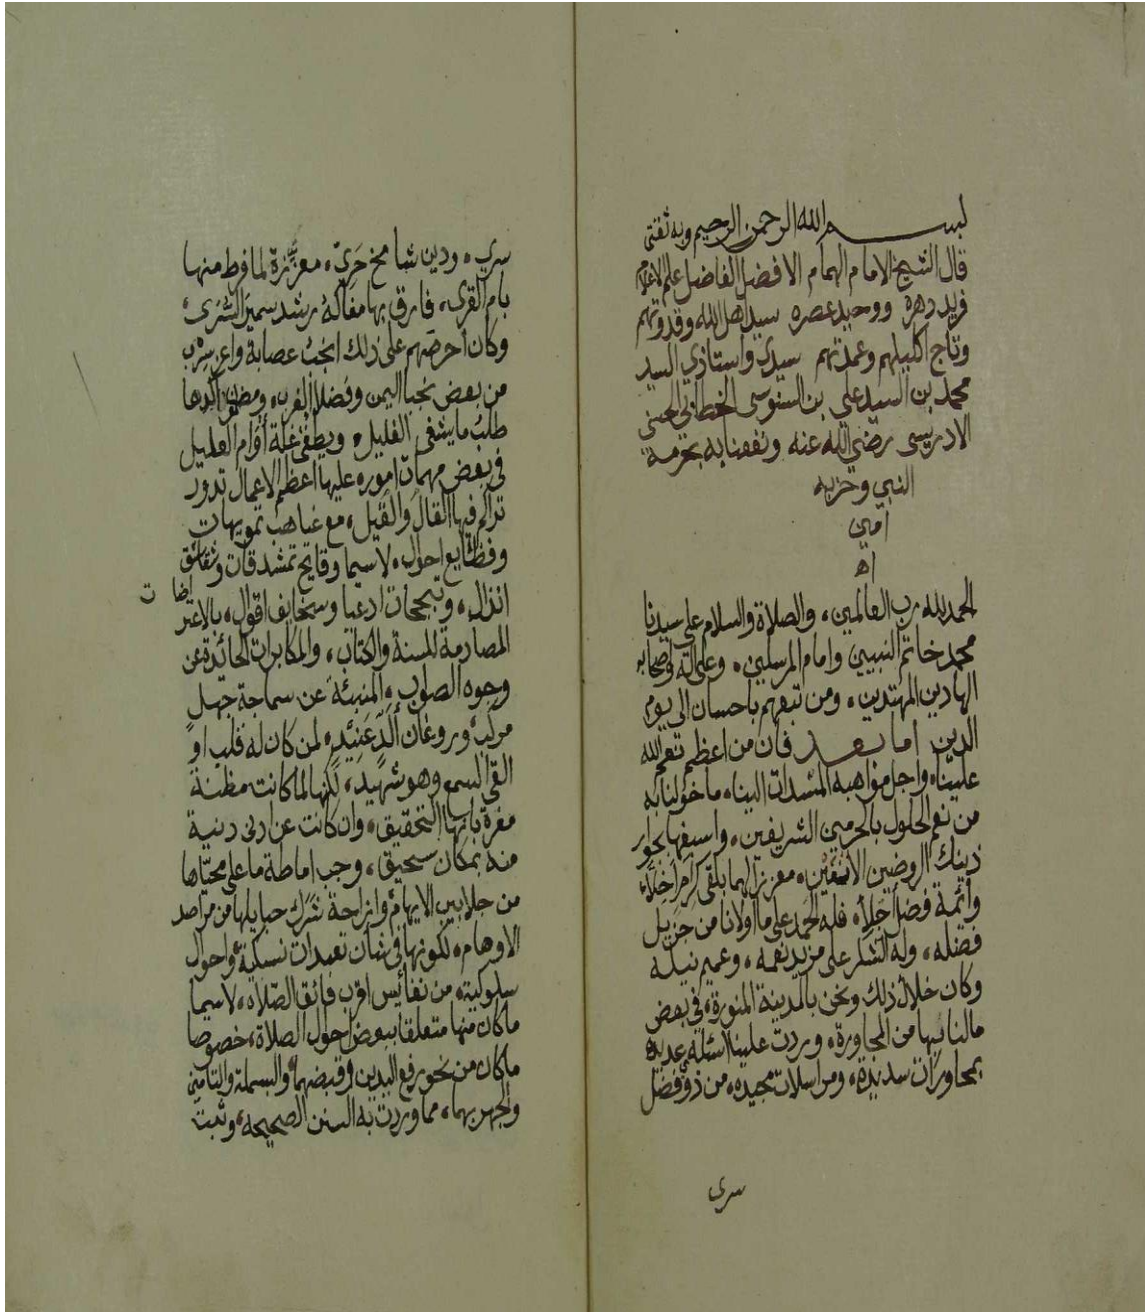 بسم الله الرحمن الرحيم وبه ثقتي
قال الشيخ الامام الهمام الافضل الفاضل علم الاعلام
فريد دهره ووحيد عصره سيد اهل الله وقدوتهم
وتاج اكليلهم وعمدتهم سيدي واستاذي السيد
محمد بن السيد علي بن السنوسي الخطابي الحسني
الادريسي رضي الله عنه ونفعنا به بحرمة
النبي وحزبه
امين
اه
الحمد لله رب العالمين، والصلاة والسلام على سيدنا
محمد خاتم النبيين وامام المرسلين، وعلى اله وصحابه
الهادين المهتدين، ومن تبعهم باحسان الى يوم
الدين اما بعد فان من اعظم نعم الله
علينا، واجل مواهبه المسدات الينا، ما خولنا به
من نعم الحلول بالحرمين الشريفين، واسبغها بجوار
ذينك الروضين الانيقين، معززا لهما بلقى كرام اخلاء
وائمة فضلا اجلاء، فله الحمد على ما اولانا من جزيل
فضله، وله الشكر على مزيد نعمه، وعميم نيله
وكان خلال ذلك ونحن بالمدينة المنورة، في بعض
ما لنا بها من المجاورة، وردت علينا اسئلة عديدة
بمحاورات سديدة، ومراسلات مجيدة، من ذو فضل
سرى
سري، ودين شامخ حَرِيّ، معززة لما فرط منها
بام القرى، فارق بها مفاكهُ رشد سمين الشرى،
وكان احرصهم على ذلك انجبُ عصابة واعز سرب
من بعض نجبا اليمن وفضلا الغرب، ومطلق اكدها
طلبُ ما يشفى الغليل، ويطفى غلة أوام العليل
في بعض مهمات اموره عليها اعظم الاعمال تدور
تراكم فيها القال والقيل، مع غياهب تمويهات
وفظايع احوال، لاسيما وقايح تمشدقات وشقاشق
انذال، وتبجحات ادعيا وسخايف اقوال، بالاعتر اضات
المصادمة للسنة والكتاب، والمكابرات الحائدة عن
وجوه الصواب، المنبئة عن سماجة جهل
مركب، وروغان ألدّ عَنِيْدٍ، لمن كان له قلب او
القى السمع وهو شهيد، لكنها لما كانت مظنة
مغرة بانها التحقيق، وان كانت عن ادنى دنية
منه بمكان سحيق، وجب اماطة ما على محيّاها
من جلابيب الايهام، وازاحة شَرَك حبايلها من مراصد
الاوهام، لكونها في شان تعبدات نسكية، واحوال
سلوكية، من نفائس اقرب فائق الصلاة، لاسيما
ما كان منها متعلقا ببعض احوال الصلاة، خصوصا
ما كان من نحو رفع اليدين وقبضهما، والبسملة والتامين
والجهر بهما، مما وردت به السنن الصحيحة، وثبت